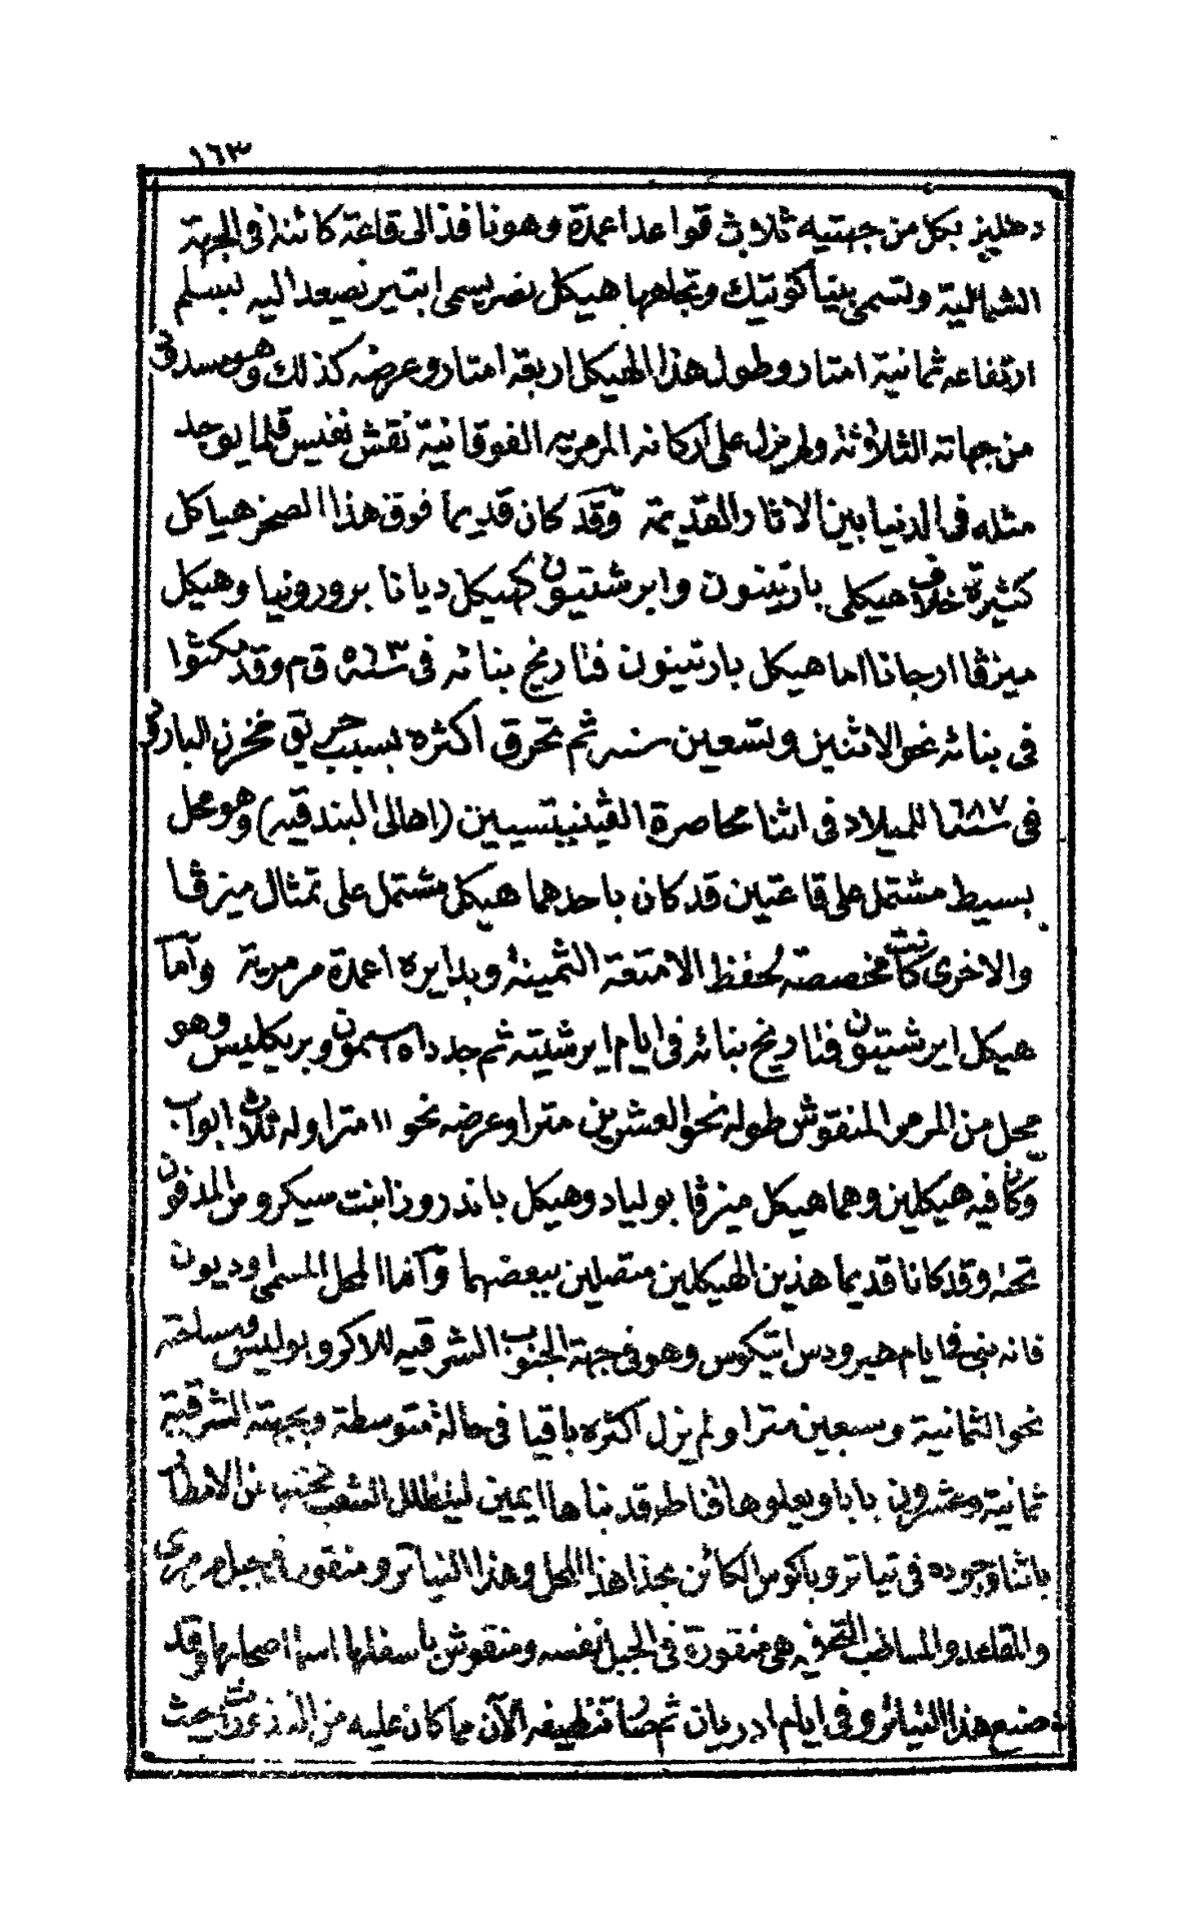 ١٦٣
دهليز بكل من جهتيه ثلاث قواعد اعمدة وهو نافذ الى قاعة كائنة في الجهة
الشمالية وتسمى بنياكوتيك وتجاهها هيكل نصر يسمى ابتير يصعد اليه بسلم
ارتفاعه ثمانية امتار وطول هذا الهيكل اربعة امتار وعرضه كذلك وهو مسدد في
من جهاته الثلاثة ولم يزل على اركانه المرمريه الفوقانية نقش نفيس قلما يوجد
مثله في الدنيا بين الاثار القديمة وقد كان قديما فوق هذا الصخر هياكل
كثيرة خلاف هيكلى بارتينون وايرشتيون كهيكل ديانا برورونيا وهيكل
ميزڤا ارجانا اما هيكل بارتينون فتاريخ بنائه في سنة ٥٦٣ ق م وقد مكثوا
في بنائه نحو الاثنين وتسعين سنه ثم تحرق اكثره بسبب حريق مخزن البارود
في سنة ١٦٨٧ للميلاد في اثنا محاصرة الڤينيتسيين (اهالى البندقيه) وهو محل
بسيط مشتمل على قاعتين قد كان باحدهما هيكل مشتمل على تمثال ميزڤا
والاخرى كانت مخصصة لحفظ الامتعة الثمينة وبدايره اعمدة مرمرية واما
هيكل ايرشتيون فتاريخ بنائه في ايام ايرشيته ثم جدداه سيمون وبريكليس وهو
محل من المرمر المنقوش طوله نحو العشرين مترا وعرضه نحو ١١ مترا وله ثلاث ابواب
وكان فيه هيكلين وهما هيكل ميزڤا بولياد وهيكل باندروزا بنت سيكروس المدفون
تحته وقد كانا قديما هذين الهيكلين متصلين ببعضهما واما المحل المسمى اوديون
فانه بنى في ايام هيرودس اتيكوس وهو في جهة الجنوب الشرقيه للاكروبوليس ومساحته
نحو الثمانية وسبعين مترا ولم يزل اكثره باقيا في حالة متوسطة وبجهته الشرقية
ثمانية وعشرون بابا ويعلوها قناطر قد بناها ايمين ليتظلل الشعب تحتها من الامطار
باثنا وجوده في تياترو باكوس الكائن بحذا هذا المحل وهذا التياترو منقور في جبل مرمرى
والمقاعد والمساطب التحتيه هى منقورة في الجبل نفسه ومنقوش باسفلها اسما اصحابها وقد
صنع هذا التياترو في ايام ادريان ثم صار تنظيفه الآن مما كان عليه من الردم